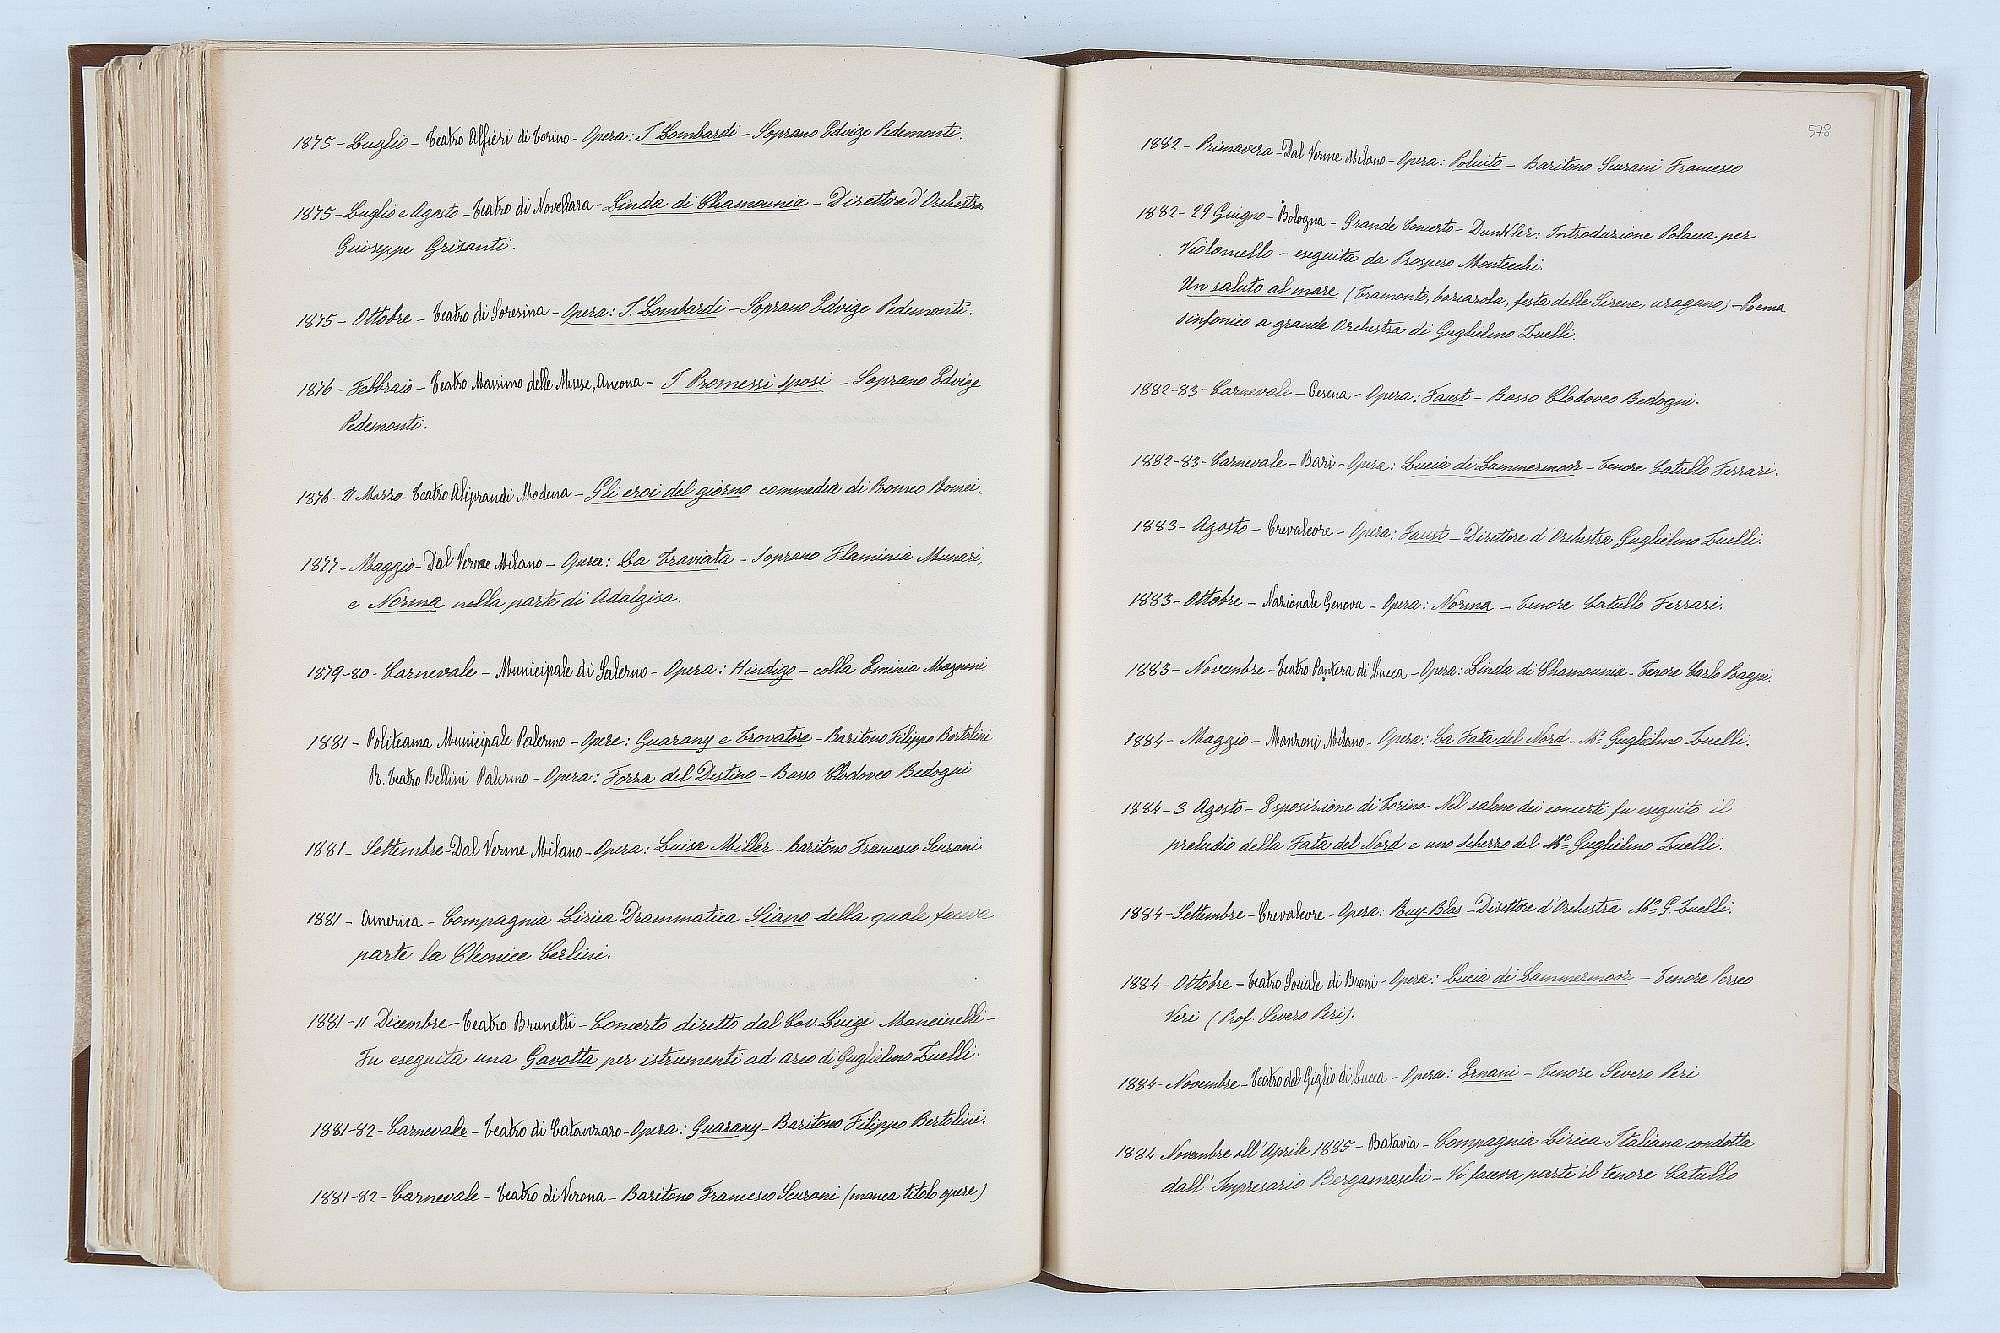 1875 - Luglio - Teatro Alfieri di Torino - Opera: I Lombardi - Soprano Edvige Pedemonti.
1875 - Luglio e Agosto - Teatro di Novellara - Linda di Chamounix - Direttore d'Orchestra
Guiseppe Grisanti.
1875 - Ottobre - Teatro di Soresina - Opera: I Lombardi - Soprano Edvige Pedemonti.
1876 - Febbraio - Teatro Massimo delle Muse, Ancona - I Promessi sposi - Soprano Edvige
Pedemonti.
1876 Marzo Teatro Aliprandi Modena - Gli eroi del giorno commedia di Romeo
1877 - Maggio - Dal Verme Milano - Opera: La Traviata - Soprano Flaminia Munari,
e Norma nella parte di Adalgisa.
1879-80 - Carnevale - Municipale di Salerno - Opera: Hindigo - colla Erminia Magnani
1881 - Politeama Municipale Palermo - Opere: Guarany e Trovatore - Baritono Filippo Bertolini
R. Teatro Bellini Palermo - Opera: Forza del Destino - Basso Clodoveo Bedogni
1881 - Settembre - Dal Verme Milano - Opera: Luisa Miller - baritono Francesco Scurani
1881 - America - Compagnia Lirica Drammatica Siano della qual faceva
parte la Cleonice Cerlini.
1881 - 11 Dicembre - Teatro Brunetti - Concerto diretto dal Cav. Luigi Mancinelli -
Fu eseguita una Gavotta per istrumenti ad arco di Guglielmo Zuelli.
1881-82 - Carnevale - Teatro di Catanzaro - Opera: Guarany - Baritono Filippo Bertolini.
1881-82 - Carnevale - Teatro di Verona - Baritono Francesco Scurani (manca titolo opere)
578
1882 - Primavera - Dal Verme Milano - Opera: Poliuto - Baritono Scurani Francesco
1882 - 29 Giugno - Bologna - Grande Concerto - Dunkler: Introduzione Polacca per
Violoncello - eseguita da Prospero Montecchi.
Un saluto al mare (Tramonto, barcarola, festa delle Sirene, uragano) - Poema
sinfonico a grande Orchestra di Guglielmo Zuelli.
1882-83 - Carnevale - Cesena - Opera: Faust - Basso Clodoveo Bedogni.
1882-83 - Carnevale - Bari - Opera: Lucia di Lammermoor - Tenore Catullo Ferrari.
1883 - Agosto - Crevalcore - Opera: Faust - Direttore d'Orchestra Guglielmo Zuelli.
1883 - Ottobre - Nazionale Genova - Opera: Norma - Tenore Catullo Ferrari.
1883 - Novembre - Teatro Pantera di Lucca - Opera: Linda di Chamounix - Tenore Carlo
1884 - Maggio - Manzoni Milano - Opera: La Fata del Nord - Mo. Guglielmo Zuelli.
1884 - 3 Agosto - Esposizione di Torino - Nel salone dei concerti fu eseguito il
preludio della Fata del Nord e uno scherzo del Mo. Guglielmo Zuelli.
1884 - Settembre - Crevalcore - Opera: Ruy-Blas - Direttore d'Orchestra Mo. G. Zuelli.
1884 Ottobre - Teatro Sociale di Broni - Opera: Lucia di Lammermoor - Tenore Perseo
Veri (Prof. Severo Peri).
1884 - Novembre - Teatro del Giglio di Lucca - Opera: Ernani - Tenore Severo Peri
1884 Novembre all'Aprile 1885 - Batavia - Compagnia Lirica Italiana condotta
dall'Impresario Bergamaschi - Vi faceva parte il tenore Catullo